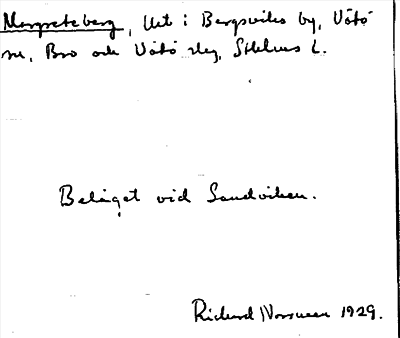 Margreteberg, Utt i Bergsviks by, Vätö
sn, Bro och Vätö slg, Sthlms L.
Beläget vid Sandviken.
Richard Norrman 1929.